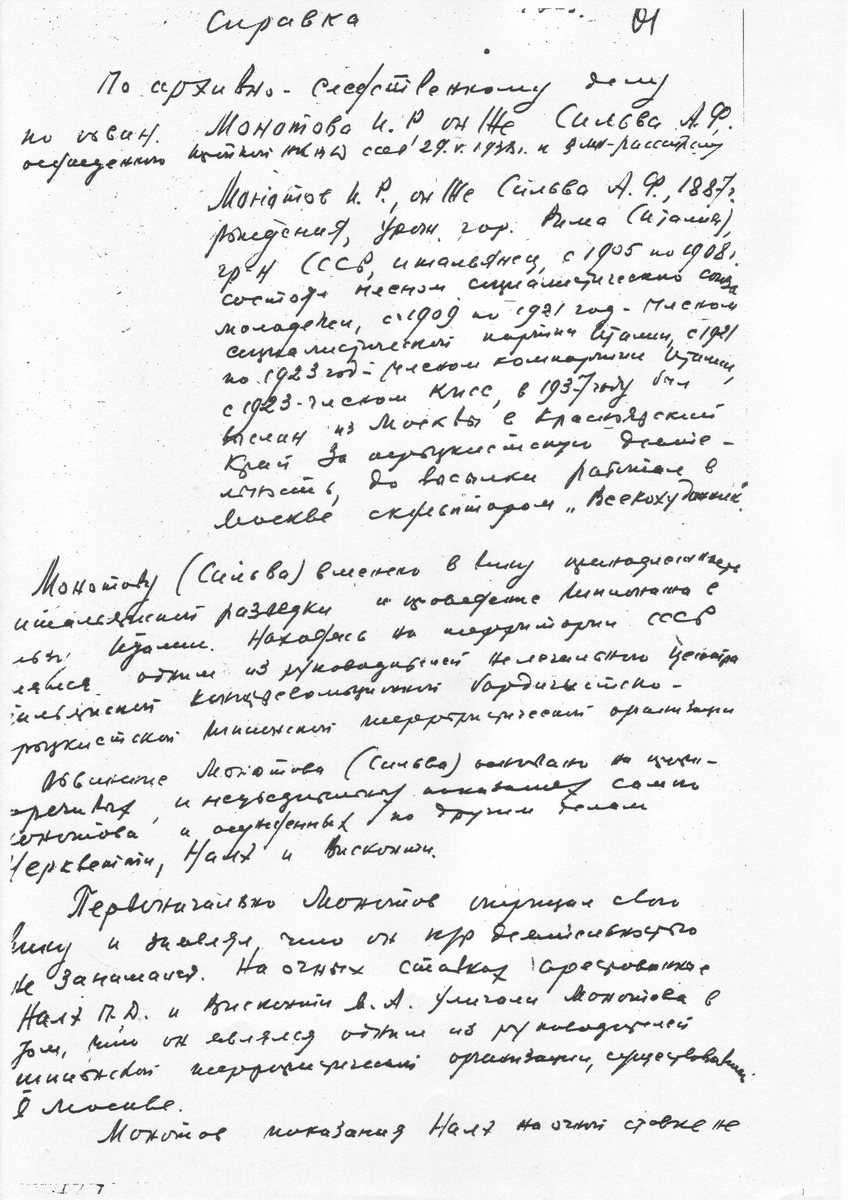 Справка
По архивно-следственному делу
по обвин. Монотова И.Р. он же Сильва А.Ф.
осужденного НКВД СССР 29.V.1938г. к ВМН-расстрелу
Монотов И.Р., он же Сильва А.Ф., 1887г.
рождения, урож. гор. Рима (Италия),
гр-н СССР, итальянец, с 1905 по 1908г.
состоял членом социалистического союза
молодежи, с 1909 по 1921 год - членом
социалистической партии Италии, с 1921
по 1923 год - членом компартии Италии,
с 1923 - членом КПСС, в 1937 году был
выслан из Москвы в Красноярский
край за троцкистскую деяте-
льность, до высылки работал в
Москве скульптором „Всекохудожник".
Монотову (Сильва) вменено в вину принадлежность
итальянской разведки и проведение шпионажа в
Италии. Находясь на территории СССР
лялся одним из руководителей нелегального центра
альянской контрреволюционной бордигистско-
роцкистской шпионской террористической организации
Обвинение Монотова (Сильва) основано на проти-
оречивых и неубедительных показаниях самого
онотова и осужденных по другим делам
Черкветти, Налх и Висконти.
Первоначально Монотов отрицал свою
вину и заявлял, что он к/р деятельностью
не занимался. На очных ставках арестованные
Налх П.Д. и Висконти В.А. уличали Монотова в
том, что он являлся одним из руководителей
шпионской террористической организации, существовавшей
в Москве.
Монотов показания Налх на очной ставке не